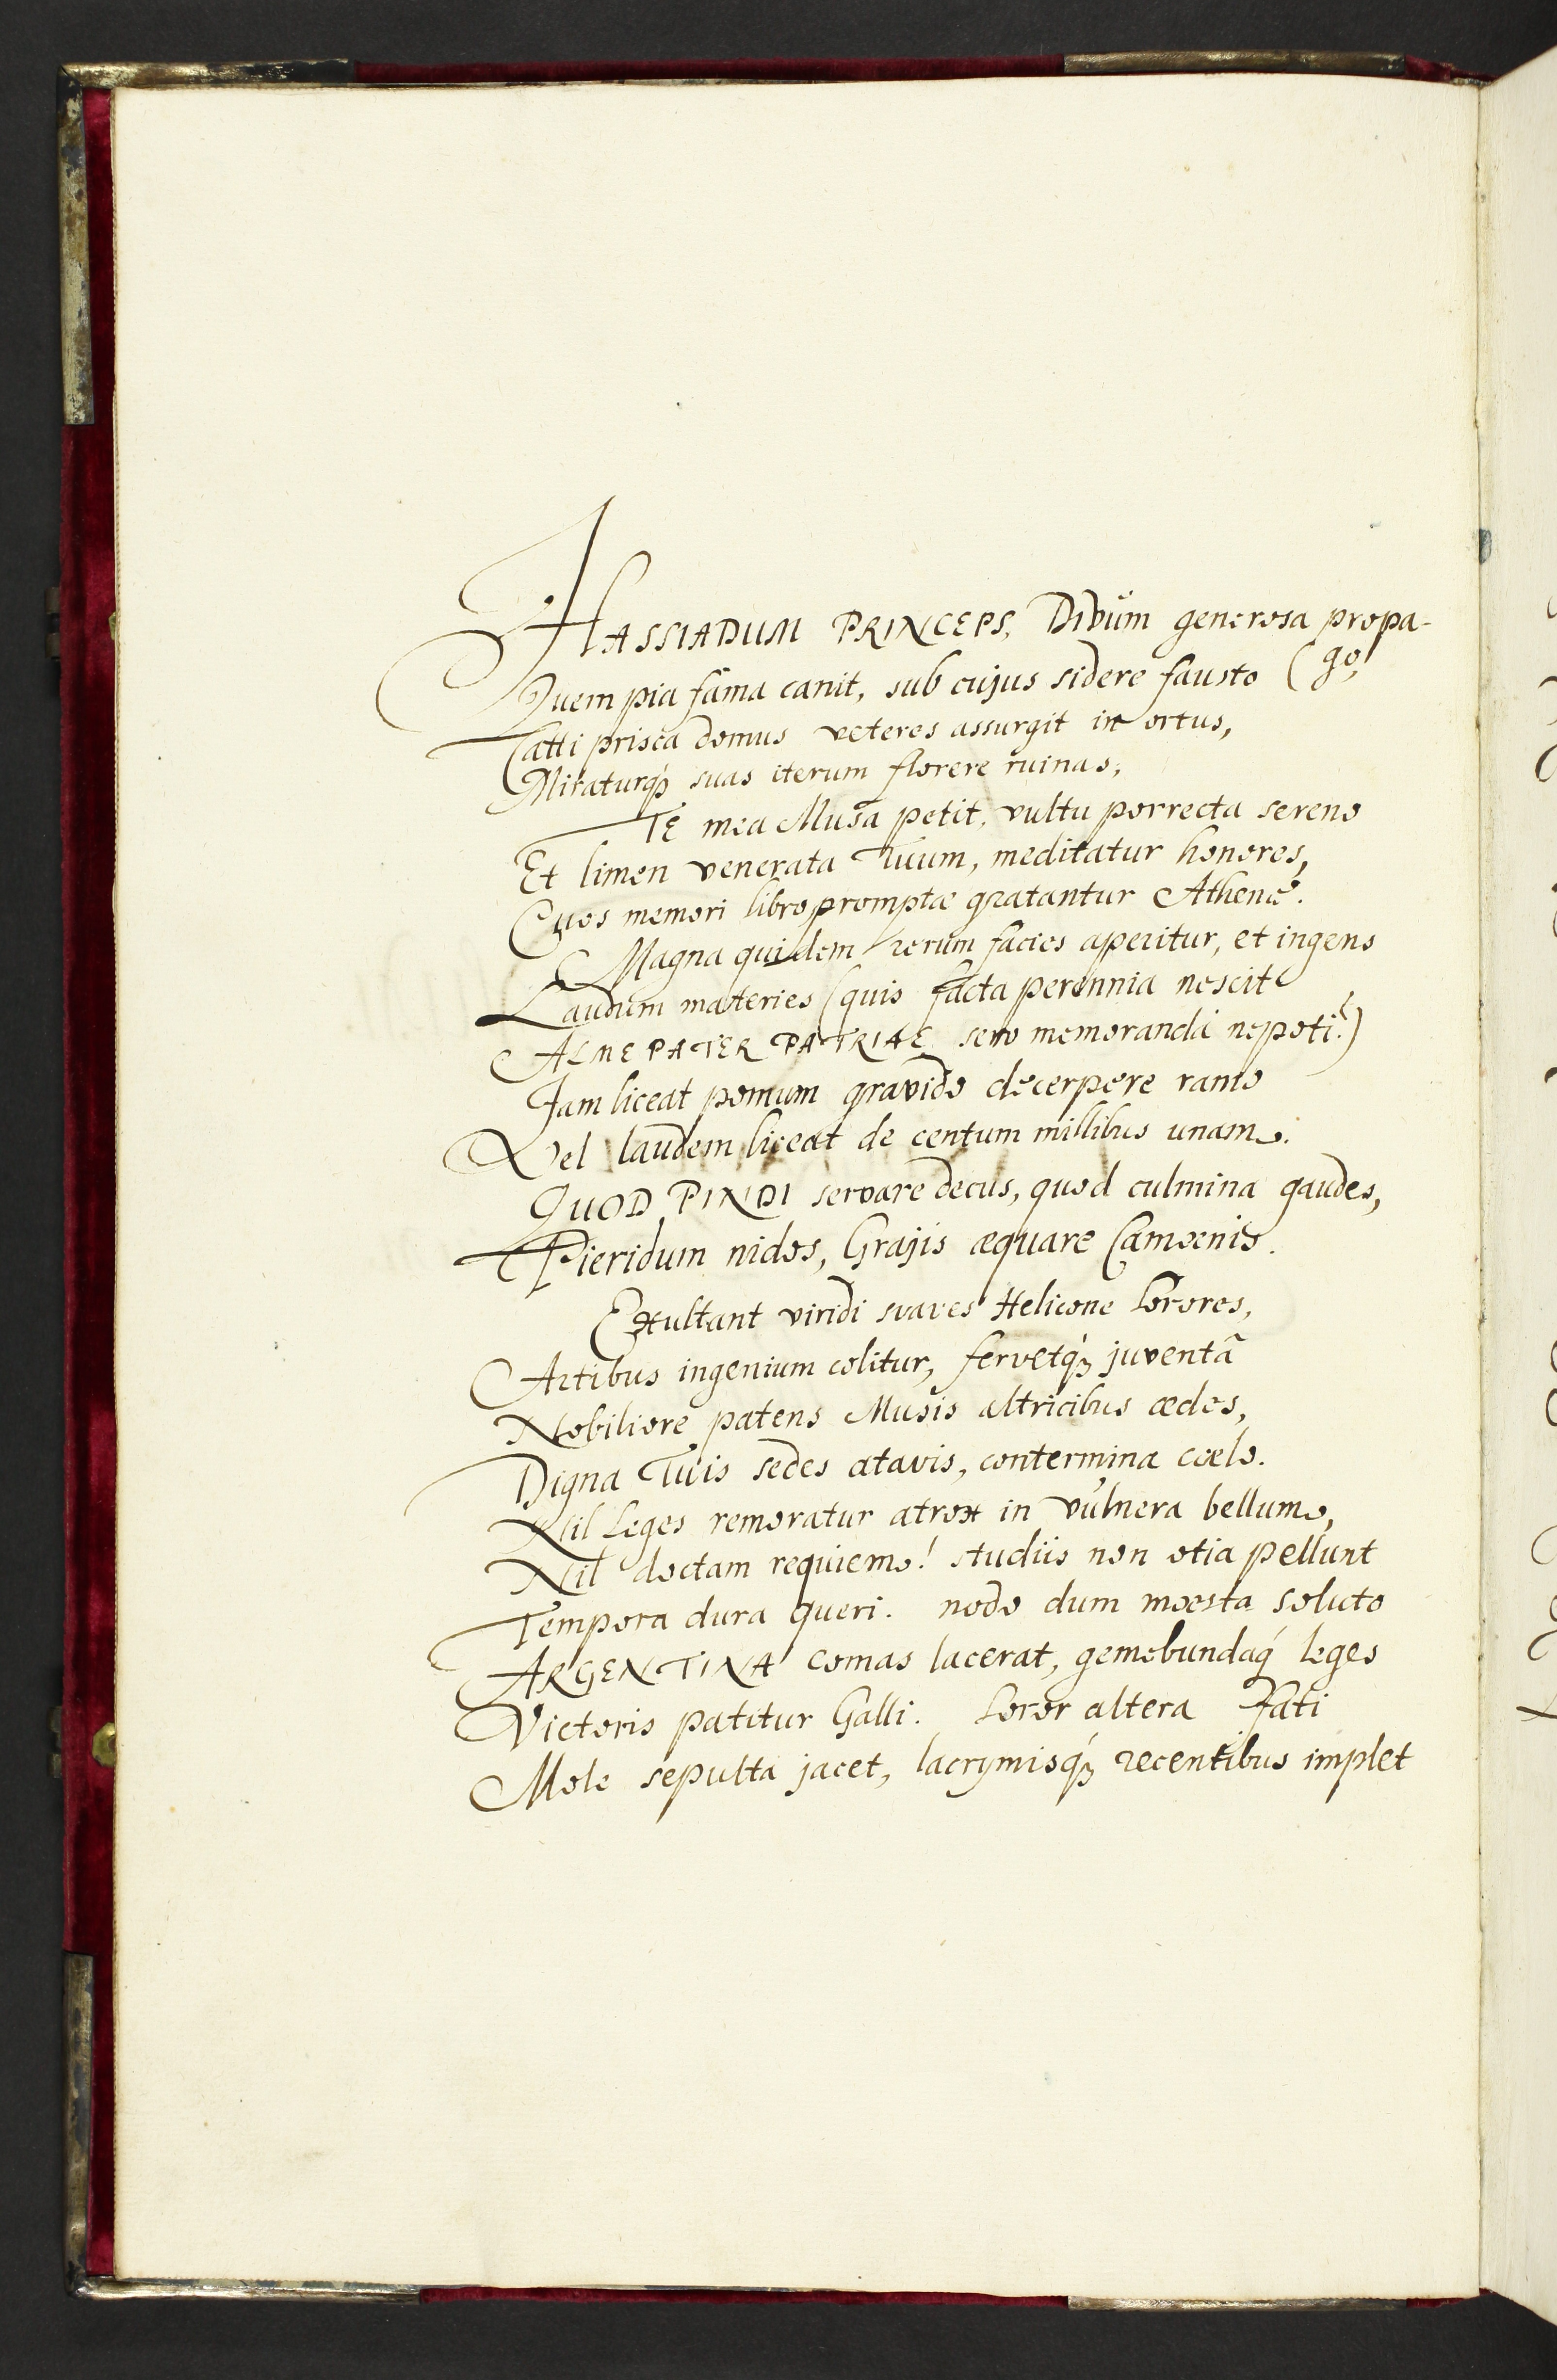 HASSIADUM PRINCEPS, Divûm generosa propa-
Quem pia fama canit, sub cujus sidere fausto (go,
Catti prisca domus veteres assurgit in ortus,
Miraturq́ꝫ suas iterum florere ruinas;
TE mea Musa petit, vultu porrecta sereno
Et limen venerata Tuum, meditatur honores,
Quos memori libro promptæ gratantur Athenæ.
Magna quidem rerum facies aperitur, et ingens
Laudum materies (quis facta perennia nescit
ALME PATER PATRIAE sero memoranda nepoti?)
Jam liceat pomum gravido decerpere ramo
Vel laudem liceat de centum millibus unam.
QUOD PINDI servare decus, quod culmina gaudes,
Pieridum nidos, Grajis æquare Camœnis.
Exultant viridi suaves Helicone Sorores,
Artibus ingenium colitur, fervetq́ꝫ juventâ
Nobiliore patens Musis altricibus ædes,
Digna Tuis sedes atavis, contermina cœlo.
Nil Leges remoratur atrox in vulnera bellum,
Nil doctam requiem! studiis non otia pellunt
Tempora dura queri. nodo dum moesta soluto
ARGENTINA comas lacerat, gemebundaq́ leges
Victoris patitur Galli. Soror altera Fati
Mole sepulta jacet, lacrymisq́ꝫ recentibus implet